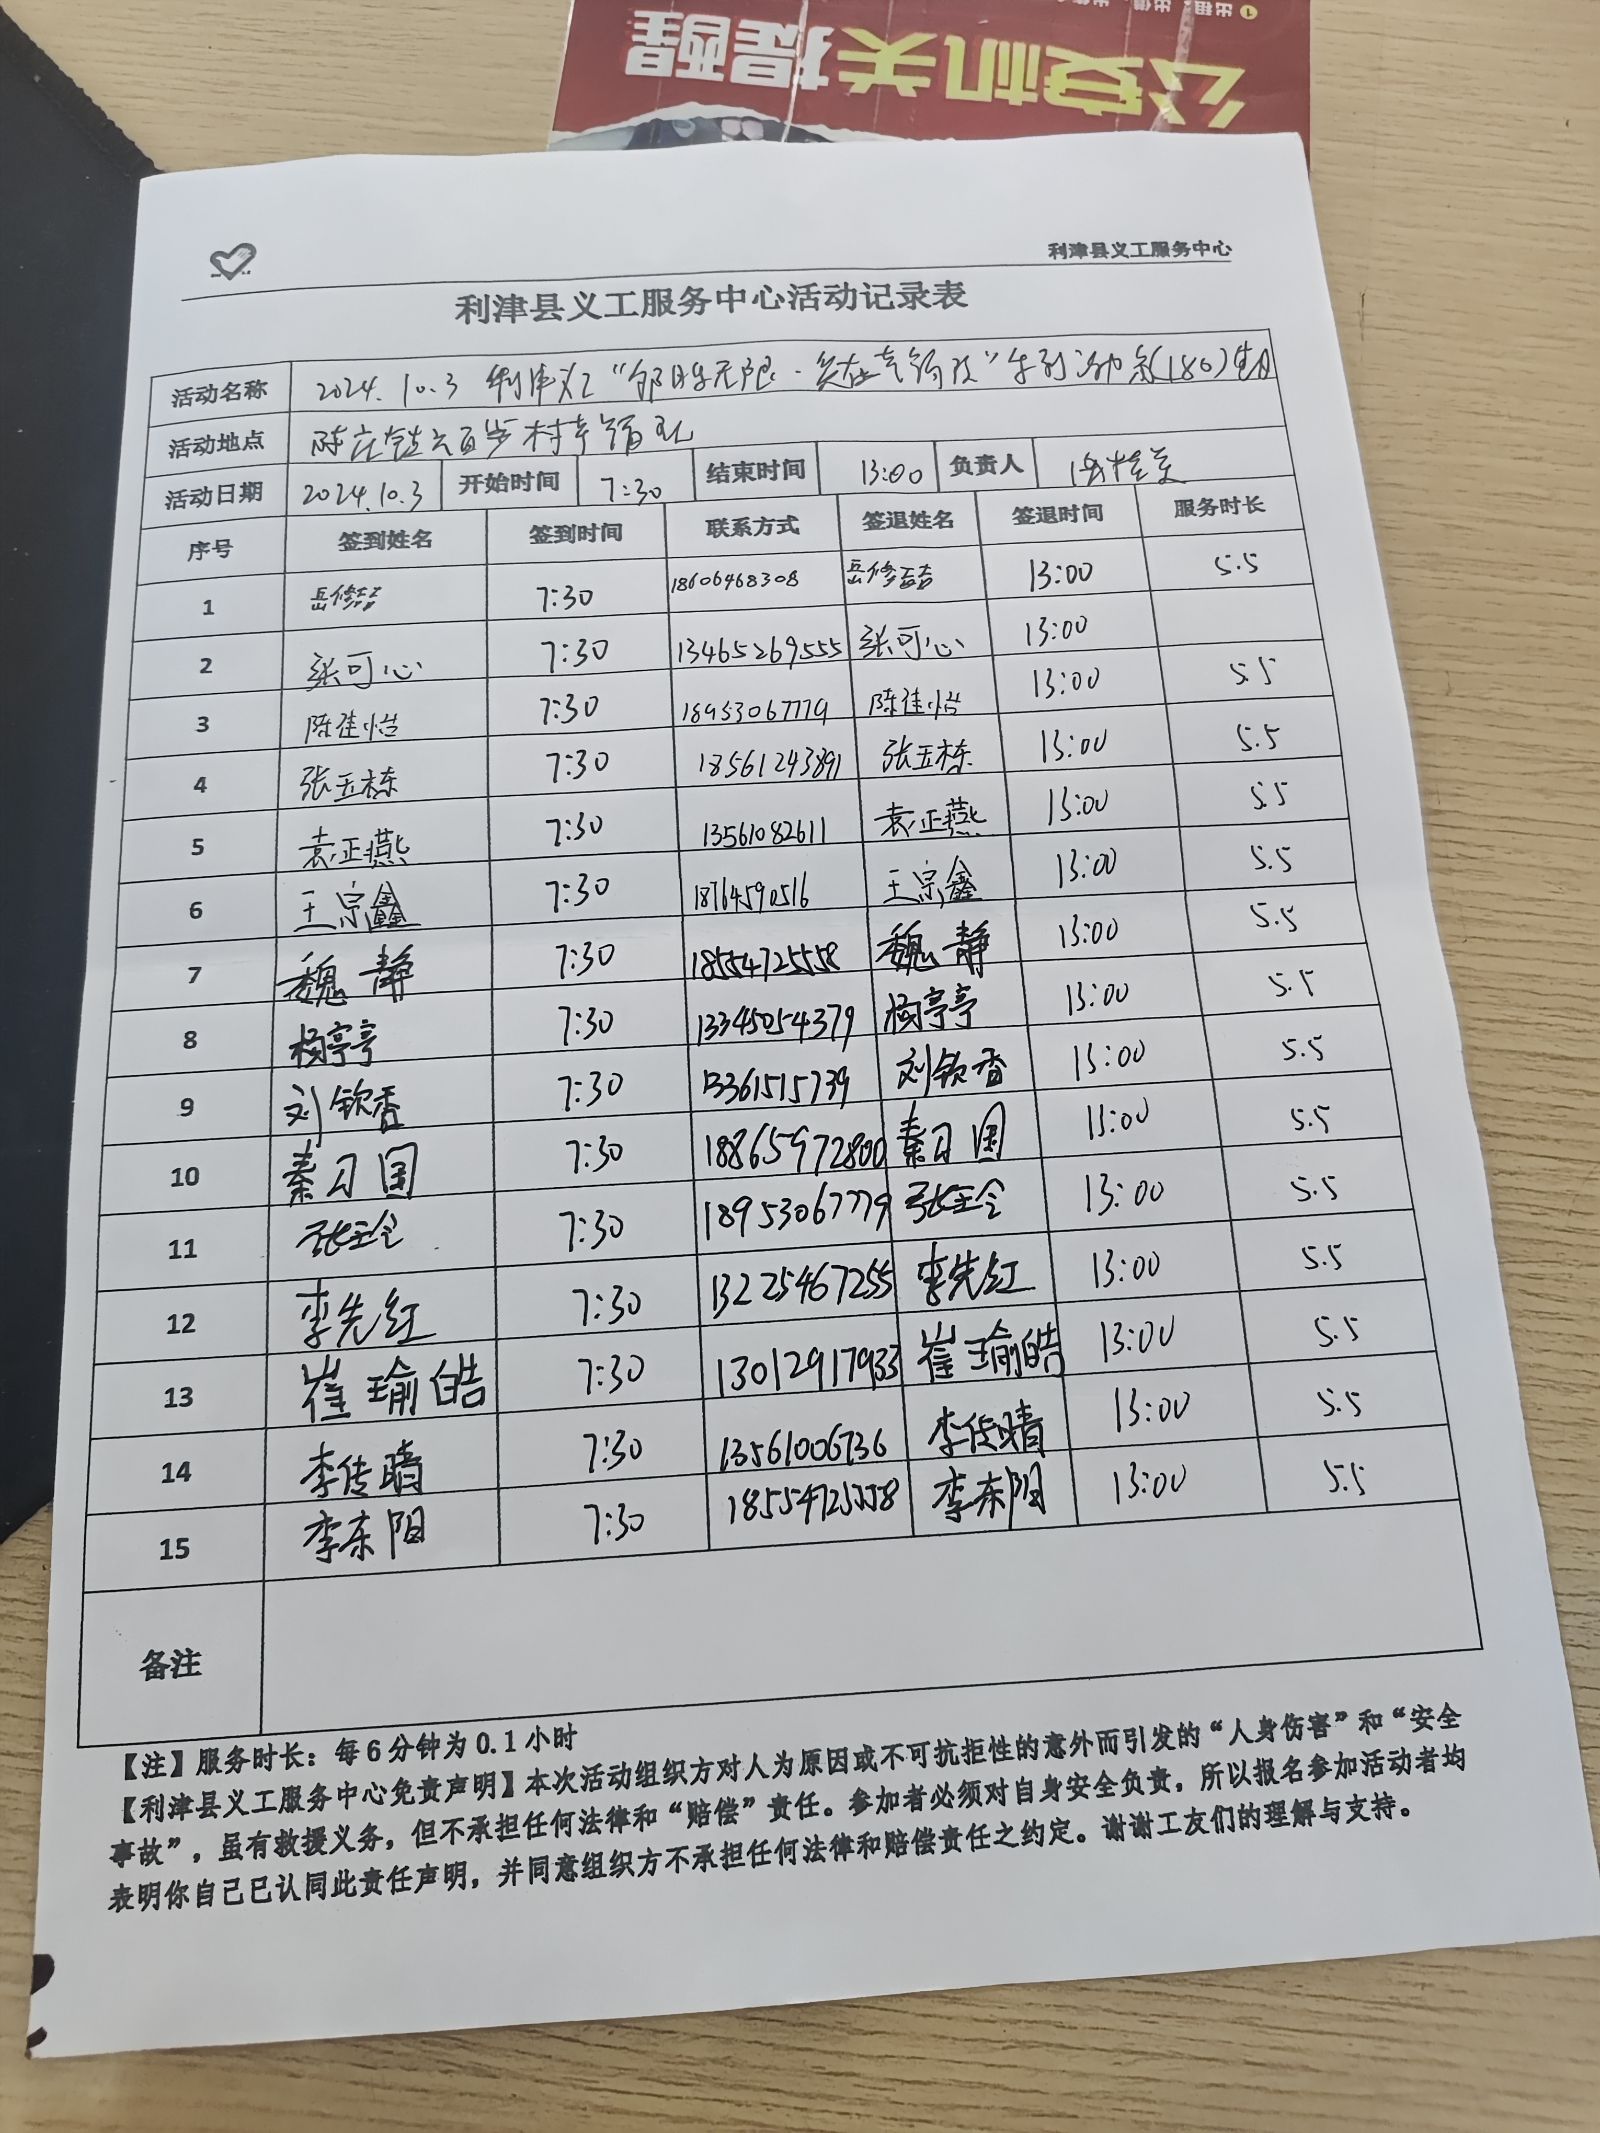 公安机关提醒
利津县义工服务中心
利津县义工服务中心活动记录表
活动名称 2024.10.3 利津义工
活动地点 陈庄镇六百步村幸福院
活动日期 2024.10.3 开始时间 7:30 结束时间 13:00 负责人
序号 签到姓名 签到时间 联系方式 签退姓名 签退时间 服务时长
1 岳修喆 7:30 18606468308 岳修喆 13:00 5.5
2 张可心 7:30 13465269555 张可心 13:00
3 陈佳怡 7:30 18953067779 陈佳怡 13:00 5.5
4 张玉栋 7:30 18561243891 张玉栋 13:00 5.5
5 袁正燕 7:30 13561082611 袁正燕 13:00 5.5
6 王宗鑫 7:30 18764590516 王宗鑫 13:00 5.5
7 魏静 7:30 18554725558 魏静 13:00 5.5
8 杨亭亭 7:30 13345054379 杨亭亭 13:00 5.5
9 刘钦香 7:30 13361515739 刘钦香 13:00 5.5
10 秦习国 7:30 18865972800 秦习国 13:00 5.5
11 张玉令 7:30 18953067779 张玉令 13:00 5.5
12 李先红 7:30 13225467255 李先红 13:00 5.5
13 崔瑜皓 7:30 13012917933 崔瑜皓 13:00 5.5
14 李传晴 7:30 13561006736 李传晴 13:00 5.5
15 李东阳 7:30 18554725558 李东阳 13:00 5.5
备注
【注】服务时长：每6分钟为0.1小时
【利津县义工服务中心免责声明】本次活动组织方对人为原因或不可抗拒性的意外而引发的“人身伤害”和“安全
事故”，虽有救援义务，但不承担任何法律和“赔偿”责任。参加者必须对自身安全负责，所以报名参加活动者均
表明你自己已认同此责任声明，并同意组织方不承担任何法律和赔偿责任之约定。谢谢工友们的理解与支持。